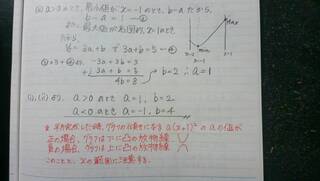 (i) a>0のとき、最小値が x=-1のとき、b-a だから、
b-a=1 -①
また、最大値が
だから
3a+b で 3a+b=5 -②
①×3+② より -3a+3b=3
+) 3a+b=5
4b=8 b=2 ; a=1
(i), (ii) より、 a>0 のとき a=1, b=2
a<0 のとき a=-1, b=4
a(x+1)² の a の値が
正の場合、グラフは下に凸の放物線
負の場合、グラフは上に凸の放物線
このことと、xの範囲に注意する。
MAX
min
x=-2
x=1